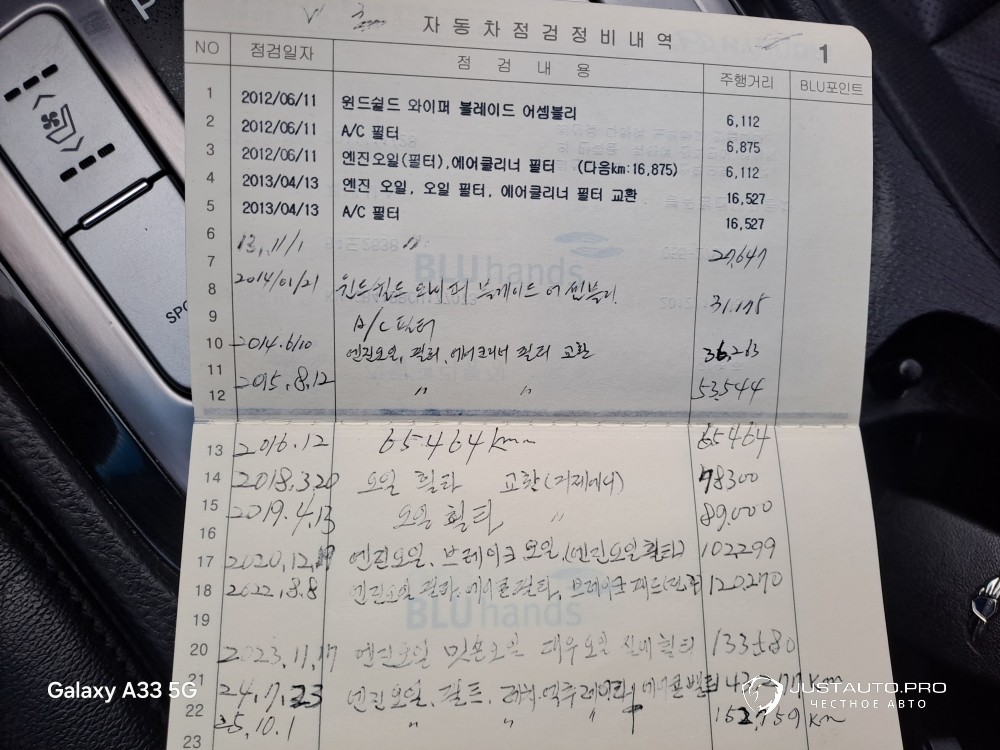 자동차점검정비내역 1
NO 점검일자 점검내용 주행거리 BLU포인트
1 2012/06/11 윈드쉴드 와이퍼 블레이드 어셈블리 6,112
2 2012/06/11 A/C 필터 6,875
3 2012/06/11 엔진오일(필터),에어클리너 필터 (다음km:16,875) 6,112
4 2013/04/13 엔진 오일, 오일 필터, 에어클리너 필터 교환 16,527
5 2013/04/13 A/C 필터 16,527
6 13, 11/1 〃 27,647
7
BLUhands
8 2014/01/21 윈드쉴드 와이퍼 블레이드 어셈블리 31,175
9 A/C 필터
10 2014.6/10 엔진오일, 필터, 에어크리너 필터 교환 36,263
11 2015.8.12 〃 〃 53,544
12
13 2016.12 65464km 65464
14 2018.3.20 오일 휠타 교환(거제에서) 78300
15 2019.4.13 오일 휠터 〃 89,000
16
17 2020.12.19 엔진오일, 브레이크 오일,(엔진오일휠타) 102299
18 2022.8.8 엔진오일 필타, 에어콘필타, 브레이크 패드 120,270
BLUhands
19
20 2023.11.17 엔진오일 밋숀오일 데후오일 실내휠터 133580
21 24,7,23 엔진오일, 필트, km
22 25,10.1 〃 〃 〃 152,759 km
23
Galaxy A33 5G
JUSTAUTO.PRO
ЧЕСТНОЕ АВТО